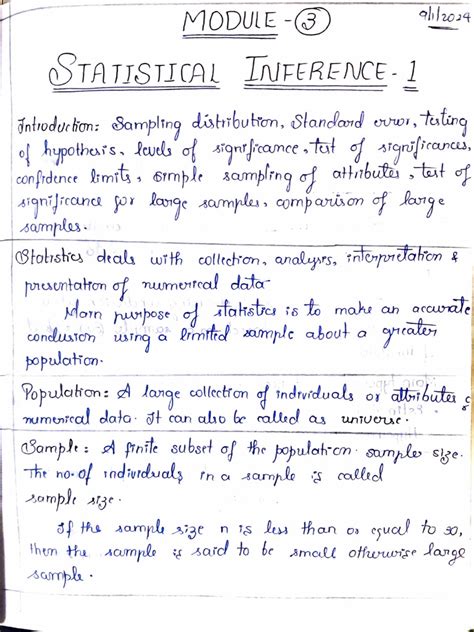 MODULE - 3
9/1/2024
STATISTICAL INFERENCE - 1
Introduction: Sampling distribution, Standard error, testing
of hypothesis, levels of significance, test of significances,
confidence limits, simple sampling of attributes, test of
significance for large samples, comparison of large
samples.
Statistics deals with collection, analysis, interpretation &
presentation of numerical data
Main purpose of statistics is to make an accurate
conclusion using a limited sample about a greater
population.
Population: A large collection of individuals or attributes or
numerical data. It can also be called as universe.
Sample: A finite subset of the population. sample size.
The no. of individuals in a sample is called
sample size.
If the sample size n is less than or equal to 30,
then the sample is said to be small otherwise large
sample.